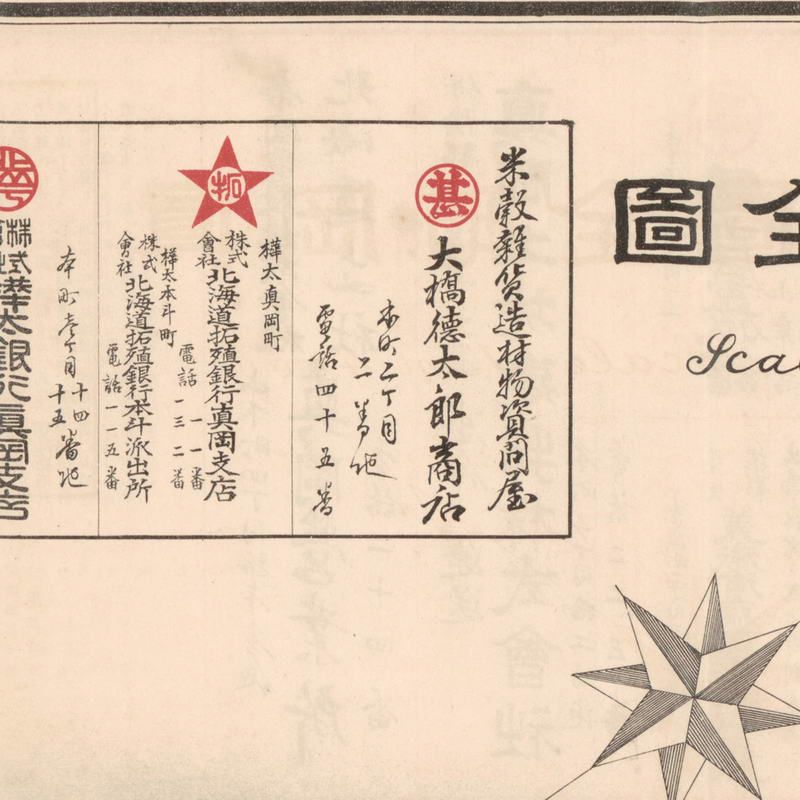 全圖
Sca
米穀雜貨造材物資問屋
甚
大橋德太郎商店
本町二丁目
二番地
電話四十五番
拓
樺太眞岡町
株式會社北海道拓殖銀行眞岡支店
電話一一番
一三二番
樺太本斗町
株式會社北海道拓殖銀行本斗派出所
電話一一五番
株式會社樺太銀行眞岡支店
本町壱丁目十四
十五番地